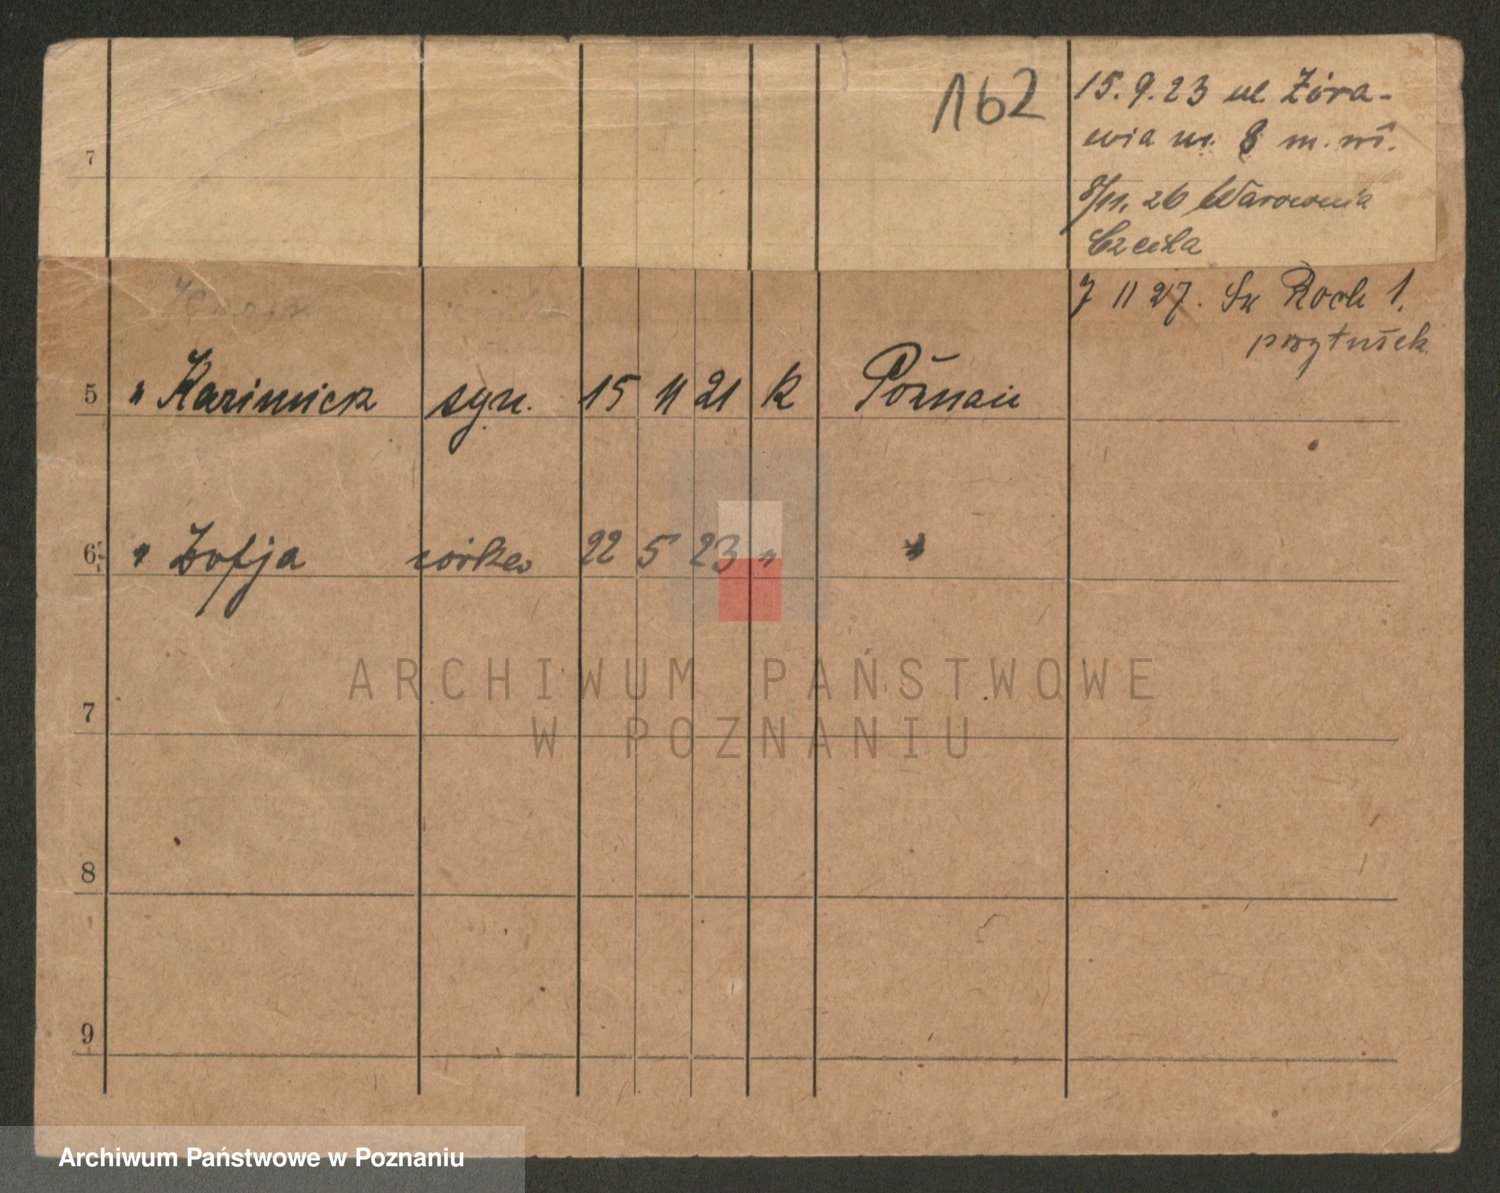 162
15.9.23 ul Żóra-
wia nr. 8 m. wł.
7
8/11. 26 Warownia
Czecha
7 11 27. Sw Roch 1.
przytułek
5 " Kazimierz syn. 15 11 21 k Poznań
6 " Zofja córka 22 5 23 " "
ARCHIWUM PAŃSTWOWE
W POZNANIU
7
8
9
Archiwum Państwowe w Poznaniu